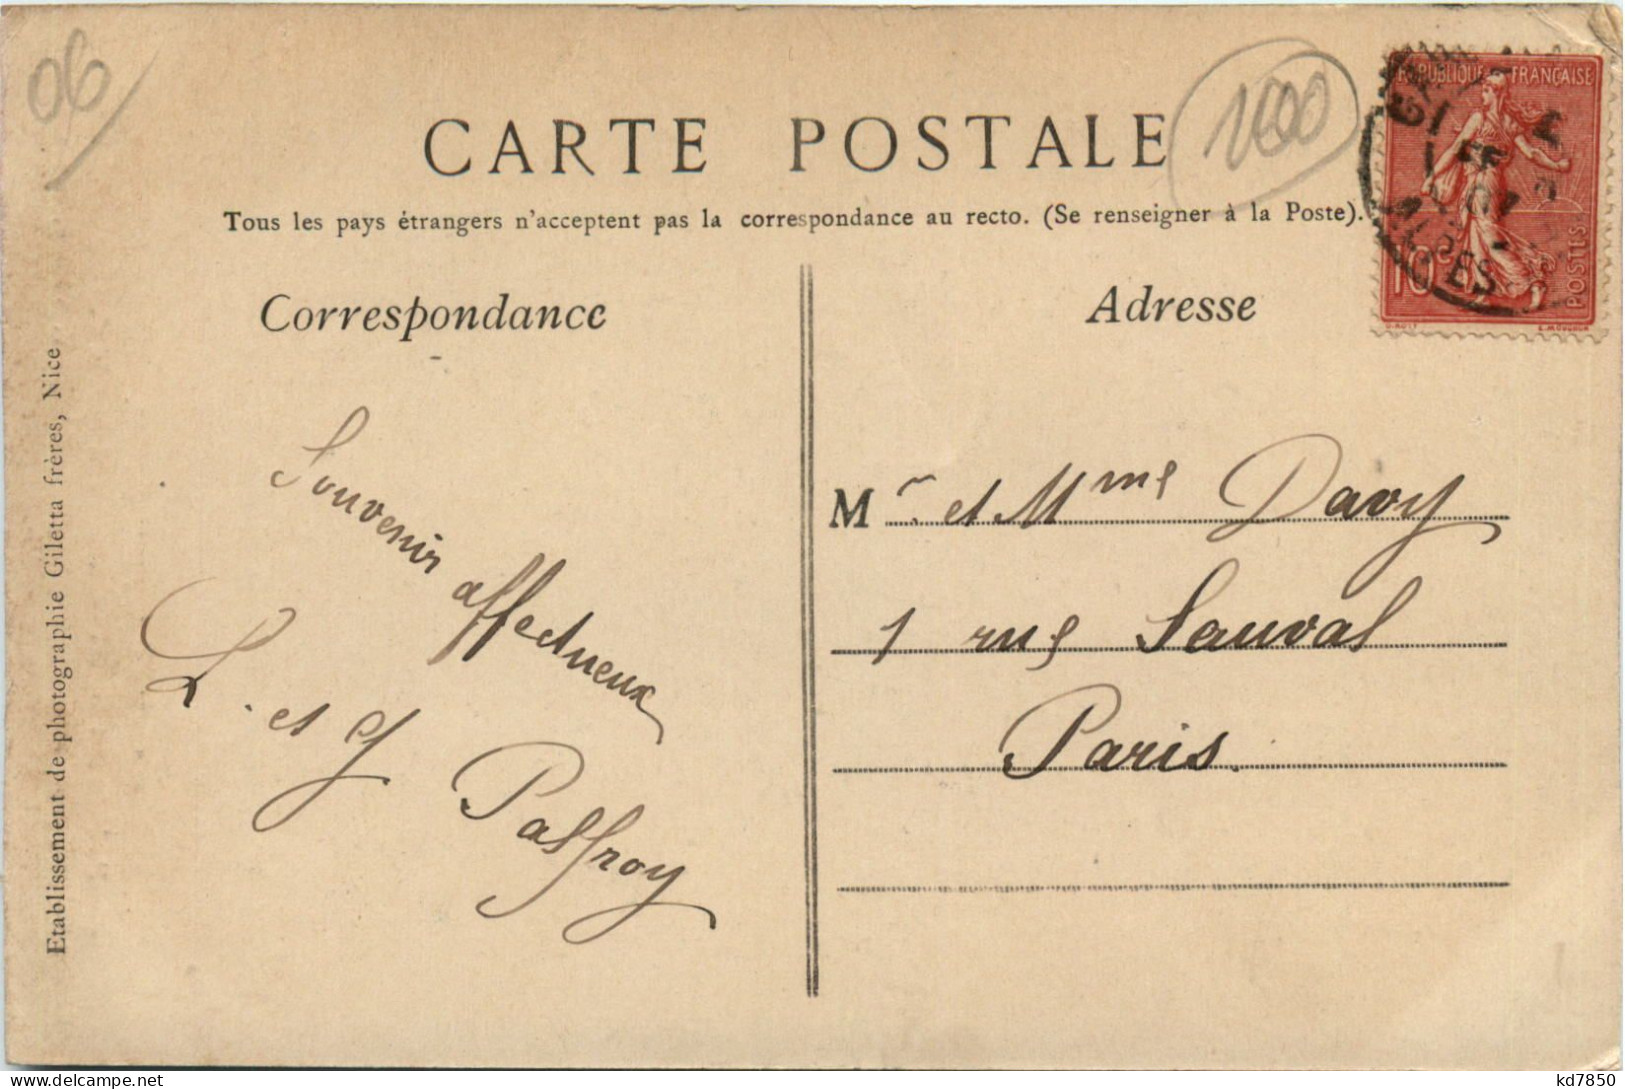 06
100
CARTE POSTALE
Tous les pays étrangers n'acceptent pas la correspondance au recto. (Se renseigner à la Poste).
Correspondance
Adresse
RÉPUBLIQUE FRANÇAISE
10c
POSTES
Souvenir affectueux
L. et J Palfroy
Mr et Mme Davy
1 rue Sauval
Paris.
Etablissement de photographie Giletta frères, Nice
kd7850